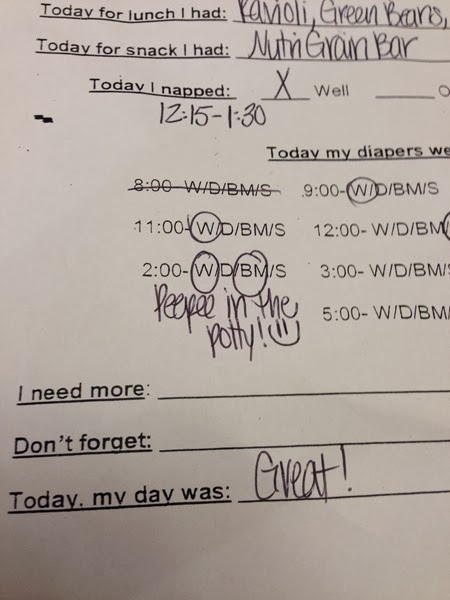 Today for lunch I had: Ravioli, Green Beans,
Today for snack I had: Nutri Grain Bar
Today I napped: X Well
12:15-1:30
Today my diapers we
8:00-W/D/BM/S 9:00-W/D/BM/S
11:00-W/D/BM/S 12:00- W/D/BM/
2:00-W/D/BM/S 3:00- W/D/BM/
Peepee in the
potty!
5:00- W/D/BM/
I need more:
Don't forget:
Today, my day was: Great!